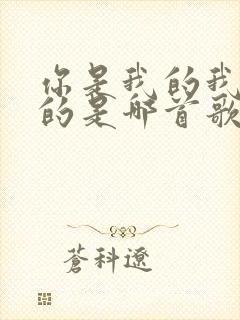 你是我的我
的是哪首歌
蒼科遼